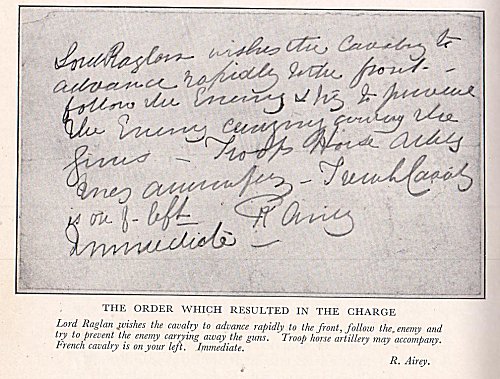 Lord Raglan wishes the Cavalry to
advance rapidly to the front -
follow the Enemy & try to prevent
the Enemy carrying away the
guns - Troop Horse Arty
may accompany - French Cavalry
is on yr left
R Airey
Immediate
THE ORDER WHICH RESULTED IN THE CHARGE
Lord Raglan wishes the cavalry to advance rapidly to the front, follow the enemy and
try to prevent the enemy carrying away the guns. Troop horse artillery may accompany.
French cavalry is on your left. Immediate.
R. Airey.